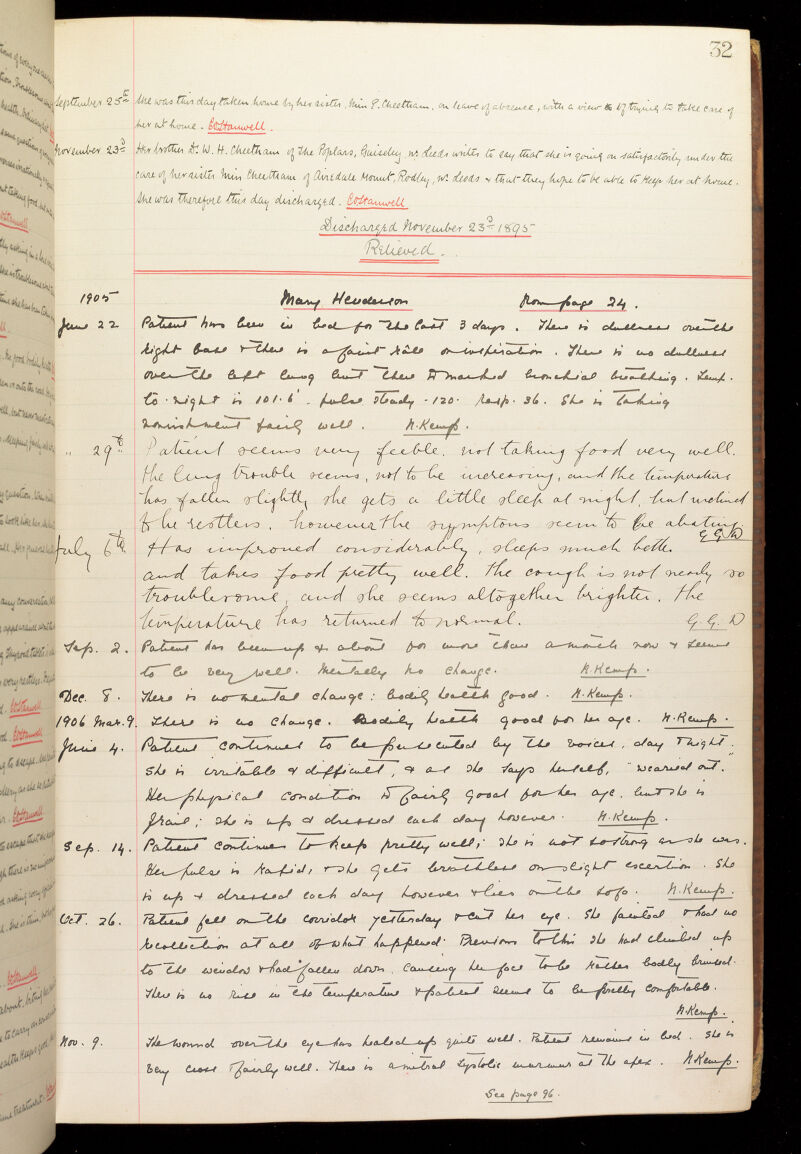 32
September 25th She was this day taken home by her sister, Miss P. Cheetham, on leave of absence, with a view to of trying to take care of
her at home. EOStanwell.
November 23d Her brother Dr. W. H. Cheetham of The Poplars, Guiseley nr. Leeds writes to say that she is going on satisfactorily under the
care of her sister Miss Cheetham of Airedale Mount, Rodley, nr. Leeds & that they hope to be able to keep her at home.
She was therefore this day discharged.
Discharged November 23d 1895
Relieved.
1905 Mary Henderson From page 24.
June 22 Patient has been in bed for the last 3 days. There is dullness over the
right base & there is a faint râle on inspiration. There is no dullness
over the left lung but there is marked bronchial breathing. Temp.
to-night is 101.6 pulse steady - 120. resp. 36. She is taking
nourishment fairly well. N. Kemp.
" 29th Patient seems very feeble, not taking food very well.
The lung trouble seems, not to be increasing, and the temperature
has fallen slightly, she gets a little sleep at night, but inclined
to be restless, however the symptoms seem to be abating.
G G D
July 6th Has improved considerably, sleeps much better
and takes food pretty well. The cough is not nearly so
troublesome, and she seems altogether brighter. The
temperature has returned to normal. G. G. D
Sep. 2. Patient has been up & about for more than a month now & seems
to be very well. Mentally no change. N. Kemp.
Dec. 8. There is no mental change: bodily health good. N. Kemp.
1906 Mar. 9. There is no change. Bodily health good for her age. N. Kemp.
June 4. Patient continues to be persecuted by the voices, day & night.
She is irritable & difficult, & as she says herself, "wearied out."
Her physical condition is fairly good for her age, but she is
frail; she is up & dressed each day however. N. Kemp.
Sep. 14. Patient continues to keep pretty well; she is not so strong as she was.
Her pulse is rapid, & she gets breathless on slight exertion. She
is up & dressed each day however & lies on the sofa. N. Kemp.
Oct. 26. Patient fell on the corridor yesterday & cut her eye. She fainted & had no
recollection at all of what happened. Previous to this she had climbed up
to the window & had fallen down, causing her face to be rather badly bruised.
There is no rise in the temperature & patient seems to be pretty comfortable.
N. Kemp.
Nov. 9. The wound over the eye has healed up quite well. Patient remains in bed. She is
very cross & fairly well. There is a mitral systolic murmur at the apex. N. Kemp.
See page 96.